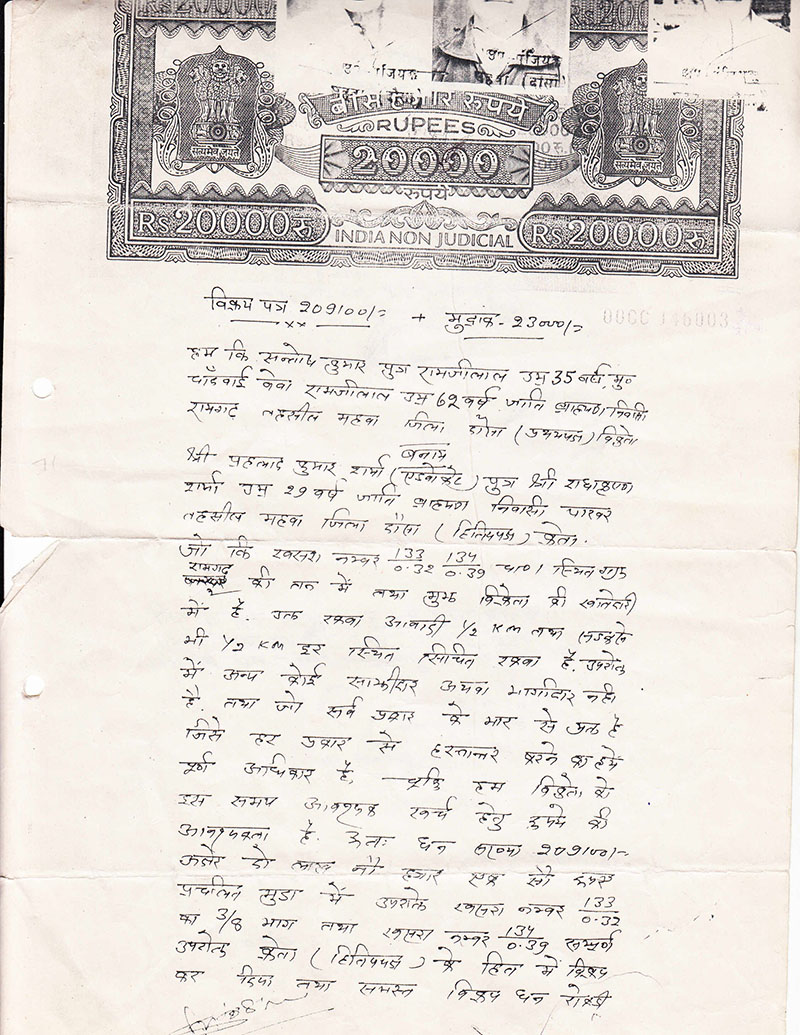 उप पंजियक
उप पंजियक
महवा (दौसा)
उप पंजियक
बीस हजार रुपये
RUPEES
20000
रुपये
सत्यमेव जयते
सत्यमेव जयते
RS 20000 रु
INDIA NON JUDICIAL
RS 20000 रु
विक्रय पत्र 209100/= + मुद्रांक - 23000/=
हम कि सन्तोष कुमार पुत्र रामजीलाल उम्र 35 वर्ष, मु०
चाँदबाई बेवा रामजीलाल उम्र 62 वर्ष जाति ब्राह्मण निवासी
रामगढ तहसील महवा जिला दौसा (प्रथमपक्ष) विक्रेता
बनाम
श्री प्रहलाद कुमार शर्मा (एडवोकेट) पुत्र श्री राधाकृष्ण
शर्मा उम्र 29 वर्ष जाति ब्राह्मण निवासी
तहसील महवा जिला दौसा (द्वितीयपक्ष) क्रेता.
जो कि खसरा नम्बर 133/0.32 134/0.39 स्थित
रामगढ की तन में तथा मुझ विक्रेता की खातेदारी
में है. उक्त रकबा आबादी 1/2 KM तथा
भी 1/2 KM दूर स्थित सिंचित रकबा है. उपरोक्त
में अन्य कोई साझीदार अथवा भागीदार नही
है. तथा जो सर्व प्रकार के भार से मुक्त है
जिसे हर प्रकार से हस्तान्तर करने का हमें
पूर्ण अधिकार है, चूंकि हम विक्रेता को
इस समय आवश्यक खर्च हेतु रुपये की
आवश्यकता है. अतः धन 209100/=
अक्षरे दो लाख नौ हजार एक सौ रुपये
प्रचलित मुद्रा में उपरोक्त खसरा नम्बर 133/0.32
का 3/8 भाग तथा खसरा नम्बर 134/0.39 सम्पूर्ण
उपरोक्त क्रेता (द्वितीयपक्ष) के हित में विक्रय
कर दिया तथा समस्त विक्रय धन रोकडी